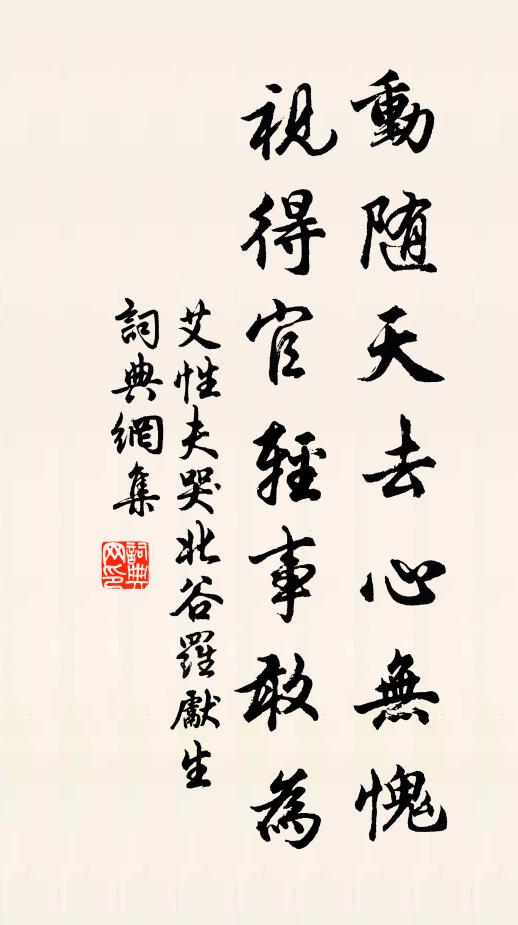 動随天去心無愧
視得官輕事敢為
艾性夫哭北谷羅獻生
詞典網集
詞典网印